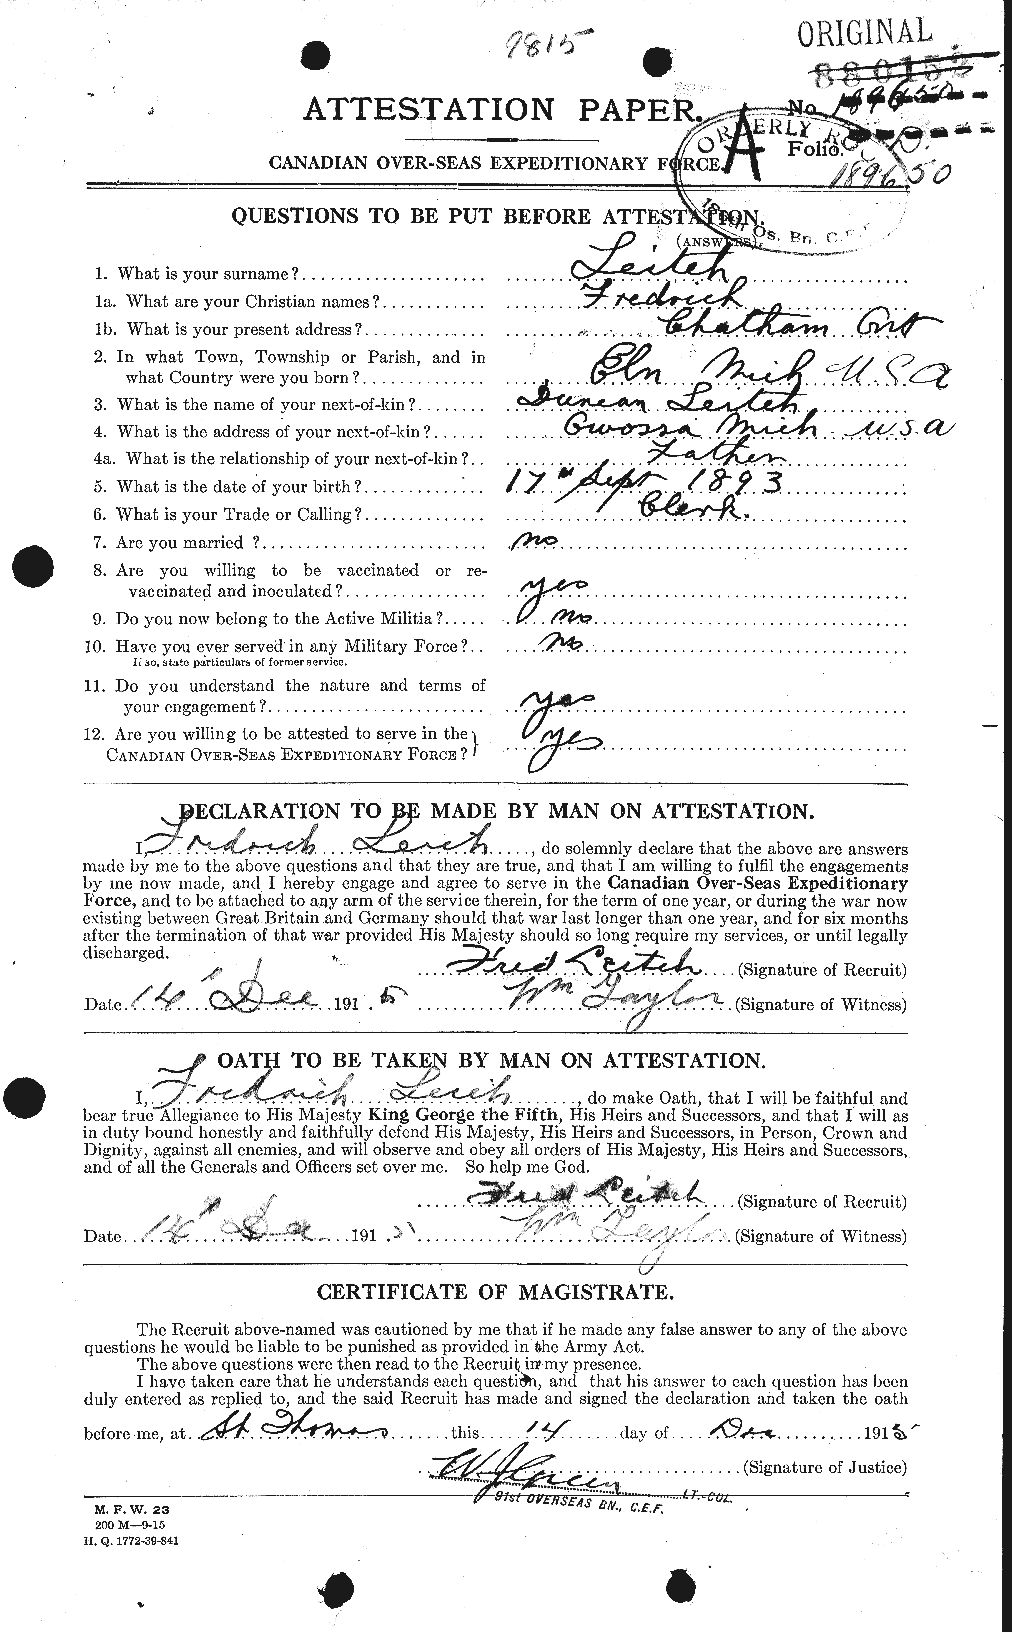 9815
ORIGINAL
ATTESTATION PAPER.
No.
A
ORDERLY
Folio.
189650
CANADIAN OVER-SEAS EXPEDITIONARY FORCE.
Os. Bn. C.E.F.
QUESTIONS TO BE PUT BEFORE ATTESTATION.
(ANSWERS).
1. What is your surname? Leitch
1a. What are your Christian names? Fredrich
1b. What is your present address? Chatham Ont
2. In what Town, Township or Parish, and in
what Country were you born? Eln Mich U.S.A
3. What is the name of your next-of-kin? Duncan Leitch
4. What is the address of your next-of-kin? Owossa Mich U.S.A
4a. What is the relationship of your next-of-kin? Father
5. What is the date of your birth? 17th Sept 1893
6. What is your Trade or Calling? Clerk.
7. Are you married ? no
8. Are you willing to be vaccinated or re-
vaccinated and inoculated? yes
9. Do you now belong to the Active Militia? no
10. Have you ever served in any Military Force? no
If so, state particulars of former service.
11. Do you understand the nature and terms of
your engagement? yes
12. Are you willing to be attested to serve in the
CANADIAN OVER-SEAS EXPEDITIONARY FORCE? yes
DECLARATION TO BE MADE BY MAN ON ATTESTATION.
I, Fredrich Leitch, do solemnly declare that the above are answers
made by me to the above questions and that they are true, and that I am willing to fulfil the engagements
by me now made, and I hereby engage and agree to serve in the Canadian Over-Seas Expeditionary
Force, and to be attached to any arm of the service therein, for the term of one year, or during the war now
existing between Great Britain and Germany should that war last longer than one year, and for six months
after the termination of that war provided His Majesty should so long require my services, or until legally
discharged.
Fred Leitch (Signature of Recruit)
Date 14 Dec 1915 Wm Taylor (Signature of Witness)
OATH TO BE TAKEN BY MAN ON ATTESTATION.
I, Fredrich Leitch, do make Oath, that I will be faithful and
bear true Allegiance to His Majesty King George the Fifth, His Heirs and Successors, and that I will as
in duty bound honestly and faithfully defend His Majesty, His Heirs and Successors, in Person, Crown and
Dignity, against all enemies, and will observe and obey all orders of His Majesty, His Heirs and Successors,
and of all the Generals and Officers set over me. So help me God.
Fred Leitch (Signature of Recruit)
Date 14 Dec 1915 Wm Taylor (Signature of Witness)
CERTIFICATE OF MAGISTRATE.
The Recruit above-named was cautioned by me that if he made any false answer to any of the above
questions he would be liable to be punished as provided in the Army Act.
The above questions were then read to the Recruit in my presence.
I have taken care that he understands each question, and that his answer to each question has been
duly entered as replied to, and the said Recruit has made and signed the declaration and taken the oath
before me, at St. Thomas this 14 day of Dec 1915
W J Green (Signature of Justice)
LT-COL.
91st OVERSEAS BN., C.E.F.
M. F. W. 23
200 M—9-15
H. Q. 1772-39-841